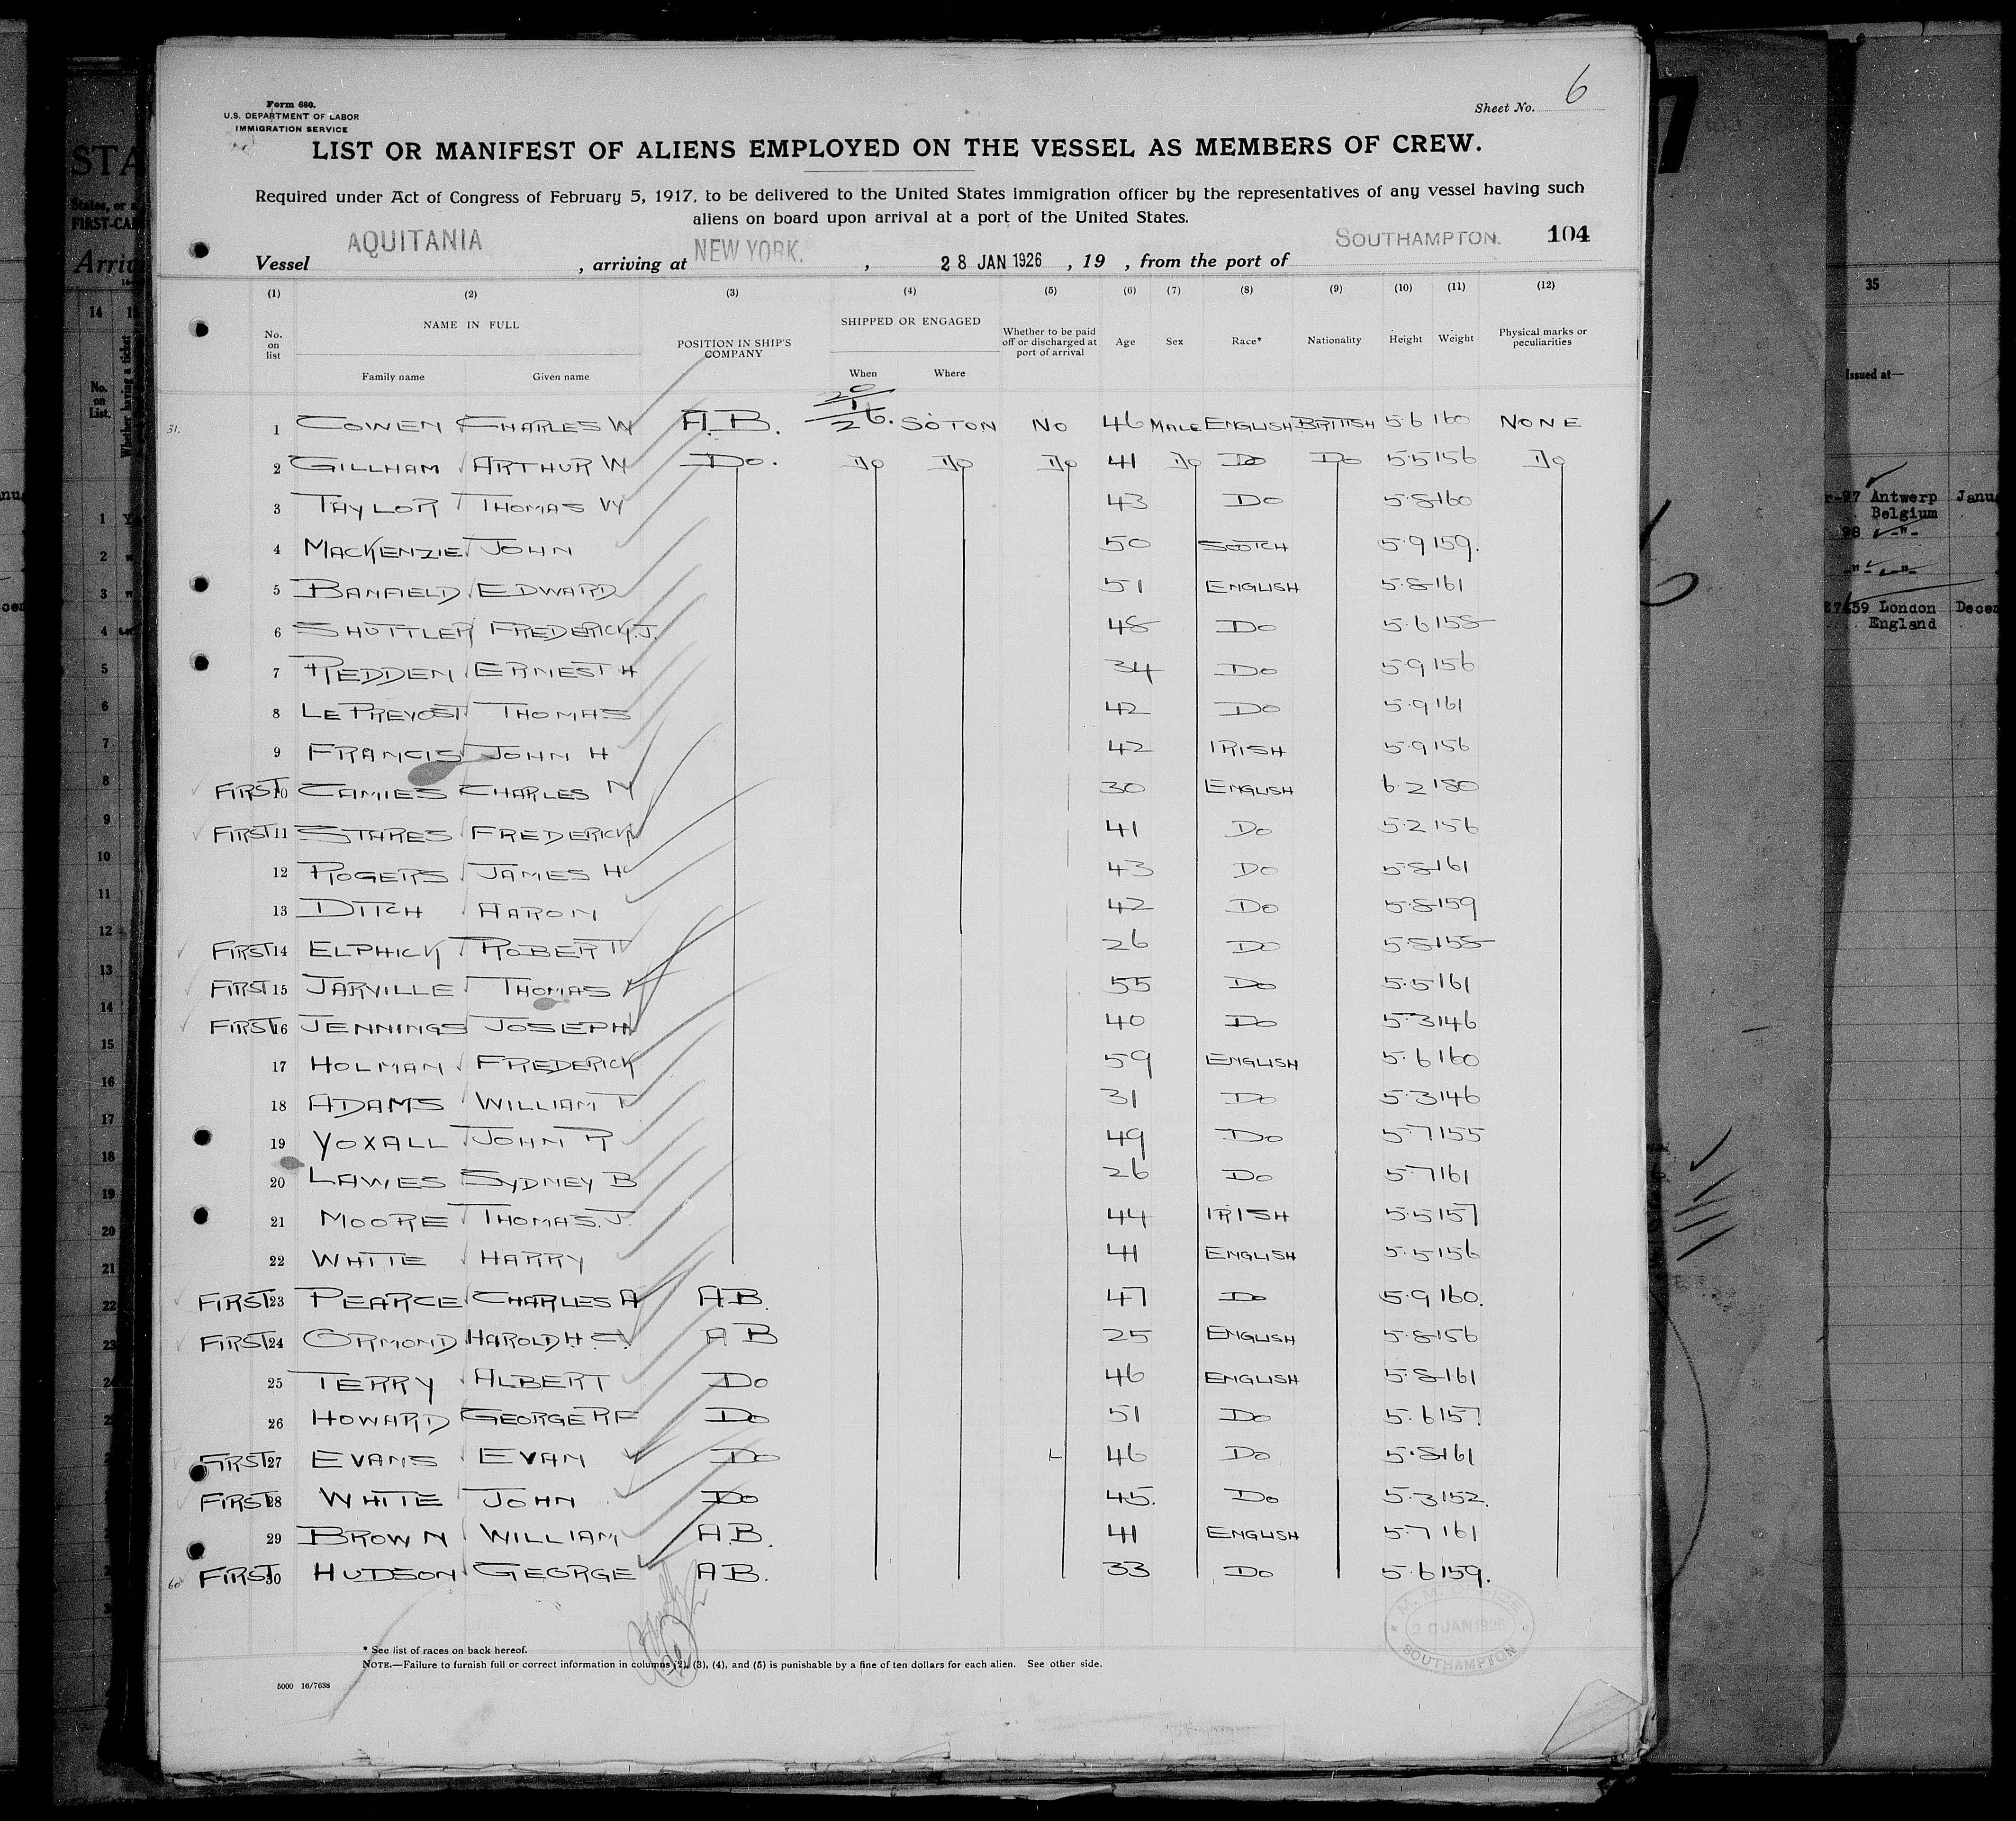 Form 680.
U.S. DEPARTMENT OF LABOR
IMMIGRATION SERVICE
Sheet No. 6
LIST OR MANIFEST OF ALIENS EMPLOYED ON THE VESSEL AS MEMBERS OF CREW.
Required under Act of Congress of February 5, 1917, to be delivered to the United States immigration officer by the representatives of any vessel having such
aliens on board upon arrival at a port of the United States.
104
Vessel AQUITANIA , arriving at NEW YORK. , 28 JAN 1926 , 19 , from the port of SOUTHAMPTON.
(1) (2) (3) (4) (5) (6) (7) (8) (9) (10) (11) (12)
No. on list NAME IN FULL Family name Given name POSITION IN SHIP'S COMPANY SHIPPED OR ENGAGED When Where Whether to be paid off or discharged at port of arrival Age Sex Race* Nationality Height Weight Physical marks or peculiarities
31. 1 COWEN CHARLES W A.B. 20/1/26. SOTON NO 46 MALE ENGLISH BRITISH 5.6 160 NONE
2 GILLHAM ARTHUR W Do. Do Do Do 41 Do Do Do 5.5 156 Do
3 TAYLOR THOMAS W 43 Do 5.8 160
4 MACKENZIE JOHN 50 SCOTCH 5.9 159.
5 BANFIELD EDWARD 51 ENGLISH 5.8 161
6 SHUTTLER FREDERICK.J. 48 Do 5.6 158
7 REDDEN ERNEST H 34 Do 5.9 156
8 LE PREVOST THOMAS 42 Do 5.9 161
9 FRANCIS JOHN H 42 IRISH 5.9 156
FIRST 10 CAMIES CHARLES N 30 ENGLISH 6.2 180
FIRST 11 STARES FREDERICK 41 Do 5.2 156
12 ROGERS JAMES H 43 Do 5.8 161
13 DITCH AARON 42 Do 5.8 159
FIRST 14 ELPHICK ROBERT 26 Do 5.8 158
FIRST 15 JARVILLE THOMAS 55 Do 5.5 161
FIRST 16 JENNINGS JOSEPH 40 Do 5.3 146
17 HOLMAN FREDERICK 59 ENGLISH 5.6 160
18 ADAMS WILLIAM T 31 Do 5.3 146
19 YOXALL JOHN R 49 Do 5.7 155
20 LAWES SYDNEY B 26 Do 5.7 161
21 MOORE THOMAS.J. 44 IRISH 5.5 157
22 WHITE HARRY 41 ENGLISH 5.5 156
FIRST 23 PEARCE CHARLES A A.B. 47 Do 5.9 160.
FIRST 24 ORMOND HAROLD H. C. A B 25 ENGLISH 5.8 156
25 TERRY ALBERT Do 46 ENGLISH 5.8 161
26 HOWARD GEORGE R F Do 51 Do 5.6 157
FIRST 27 EVANS EVAN Do 46 Do 5.8 161
FIRST 28 WHITE JOHN Do 45. Do 5.3 152.
29 BROWN WILLIAM A.B. 41 ENGLISH 5.7 161
60 FIRST 30 HUDSON GEORGE A.B. 33 Do 5.6 159.
20 JAN 1926
SOUTHAMPTON
* See list of races on back hereof.
NOTE.—Failure to furnish full or correct information in columns (2), (3), (4), and (5) is punishable by a fine of ten dollars for each alien. See other side.
5000 16/7638
STA
States, or a
FIRST-CA
Arriv
14
No. on List.
Whether having a ticket
1
2
3
4
5
6
7
8
9
10
11
12
13
14
15
16
17
18
19
20
21
22
23
35
Issued at—
Antwerp
Belgium
London
England